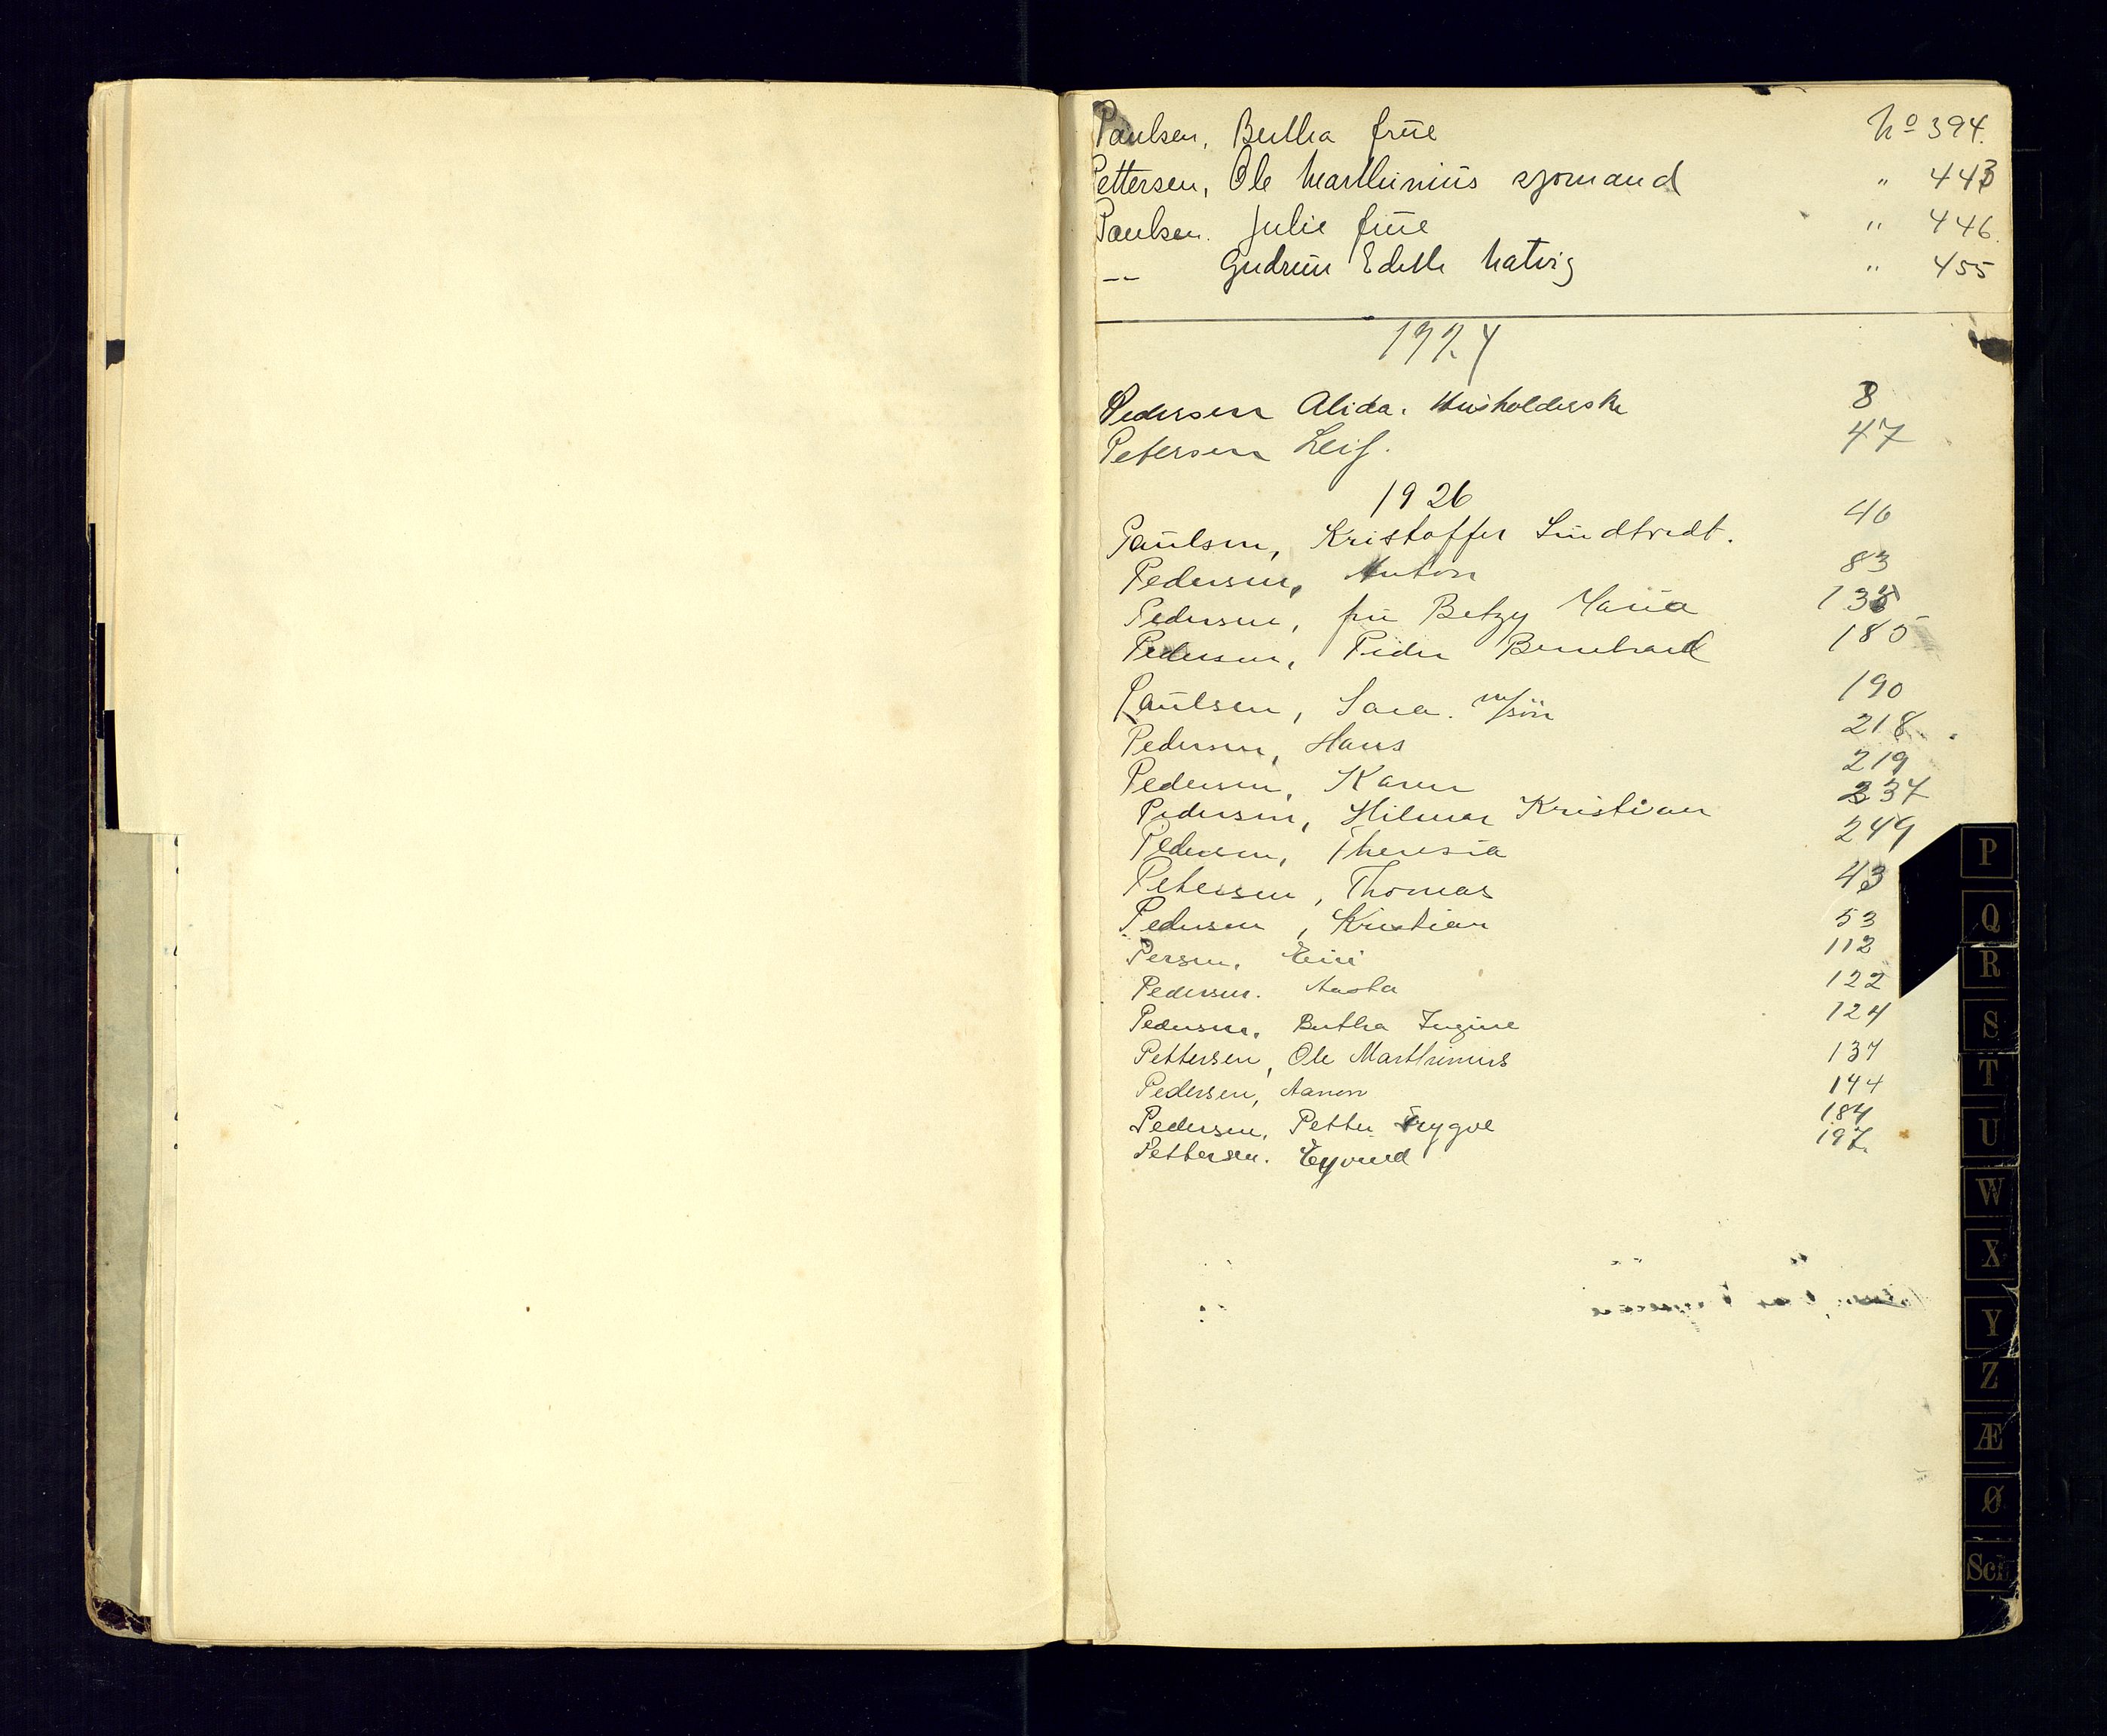 Paulsen, Bertha frue No 394.
Pettersen, Ole Marthinius sjømand " 443
Paulsen. Julie frue " 446.
-- Gudrun Edith Hatvig " 455
1924
Pedersen Alida. Husholderske 8
Petersen Leif. 47
1926
Paulsen, Kristoffer Lundtvedt. 46
Pedersen, Anton 83
Pedersen, fru Betzy Maria 138
Pedersen, Peder Bernhard 185
Paulsen, Sara. m/søn 190
Pedersen, Hans 218
Pedersen, Karen 219
Pedersen, Hilmar Kristian 237
Pedersen, Theresia 249
Petersen, Thomas 43
Pedersen, Kristian 53
Persen, 112
Pedersen. Aasta 122
Pedersen, Bertha Ingine 124
Pettersen, Ole Marthinius 137
Pedersen, Aanon 144
Pedersen, Petter Trygve 184
Pettersen. Eyvind 197.
P
Q
R
S
T
U
W
X
Y
Z
Æ
Ø
Sch